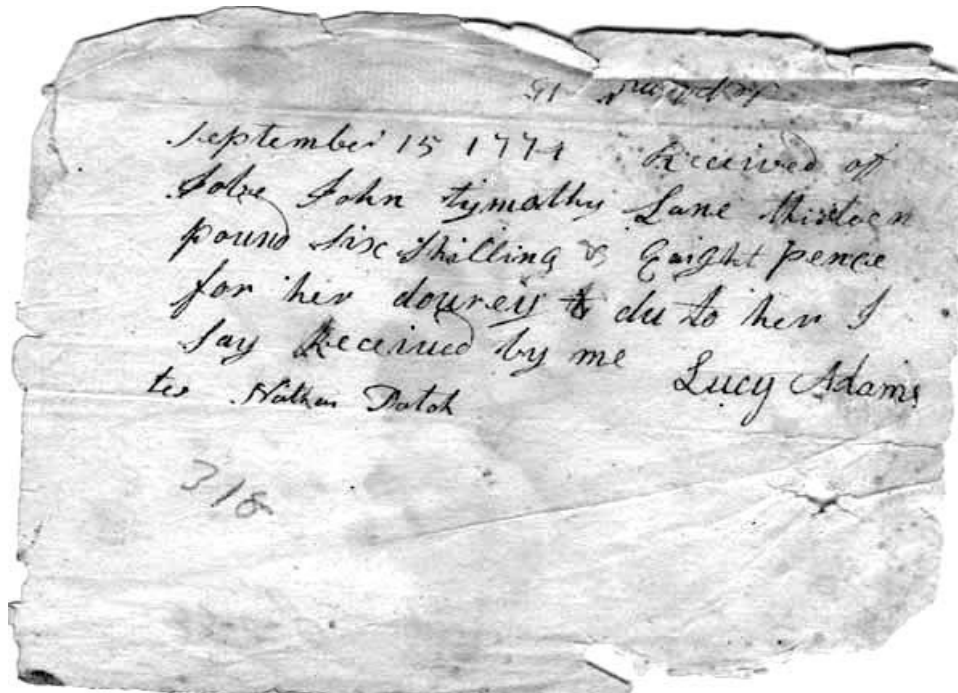 September 15
September 15 1774 Received of
John tymothy Lane thirteen
pound six shilling & Eaight pence
for her dourey du to her I
say Received by me Lucy Adams
Nathan Patch
318